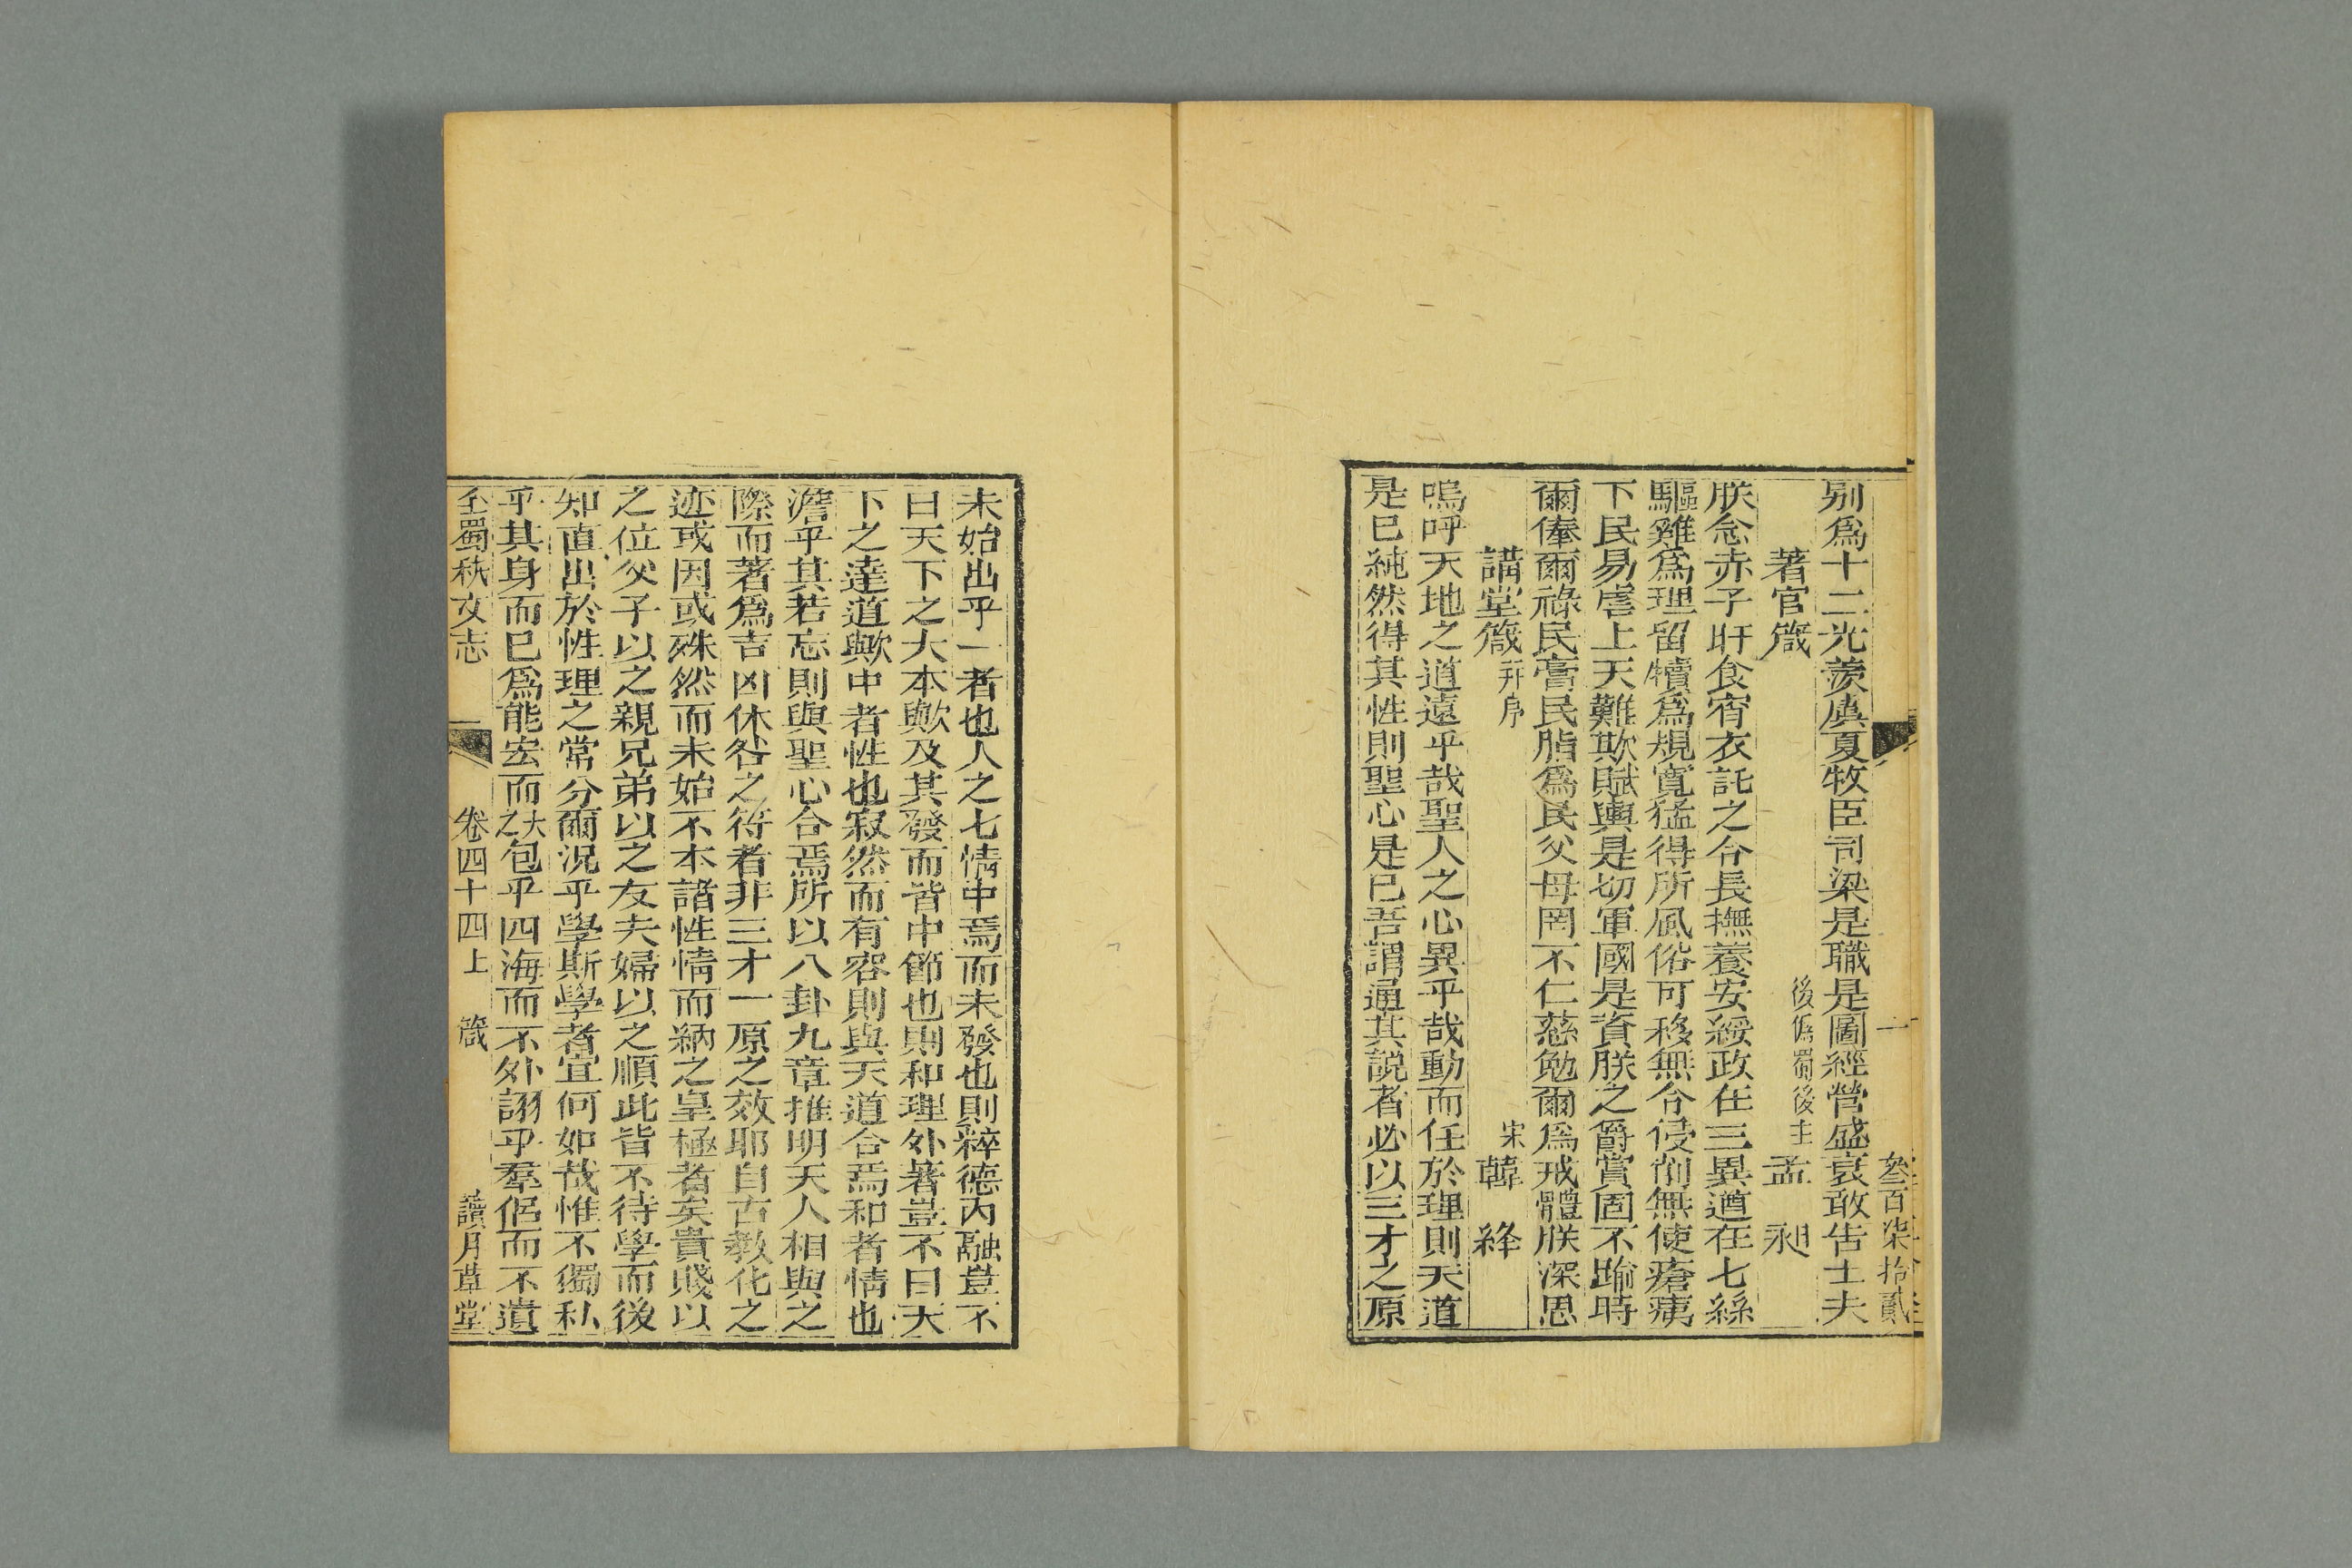 一　叁百柒拾貳
别爲十二光羨虞夏牧臣司梁是職是圖經營盛衰敢告士夫
著官箴　後僞蜀後主　孟　昶
朕念赤子旰食宵衣託之令長撫養安綏政在三異道在七絲
驅雞爲理留犢爲規寬猛得所風俗可移無令侵削無使瘡痍
下民易虐上天難欺賦輿是切軍國是資朕之爵賞固不踰時
爾俸爾祿民膏民脂爲民父母罔不仁慈勉爾爲戒體朕深思
講堂箴并序　宋　韓　絳
嗚呼天地之道遠乎哉聖人之心異乎哉動而任於理則天道
是已純然得其性則聖心是已吾謂通其説者必以三才之原
未始出乎一者也人之七情中焉而未發也則粹德内融豈不
曰天下之大本歟及其發而皆中節也則和理外著豈不曰天
下之達道歟中者性也寂然而有容則與天道合焉和者情也
澹乎其若忘則與聖心合焉所以八卦九章推明天人相與之
際而著爲吉凶休咎之符者非三才一原之效耶自古敎化之
迹或因或殊然而未始不本諸性情而納之皇極者矣貴賤以
之位父子以之親兄弟以之友夫婦以之順此皆不待學而後
知直出於性理之常分爾況乎學斯學者宜何如哉惟不獨私
乎其身而已爲能宏而大之包乎四海而不外詡乎羣侶而不遺
全蜀秇文志　卷四十四上　箴　讀月草堂